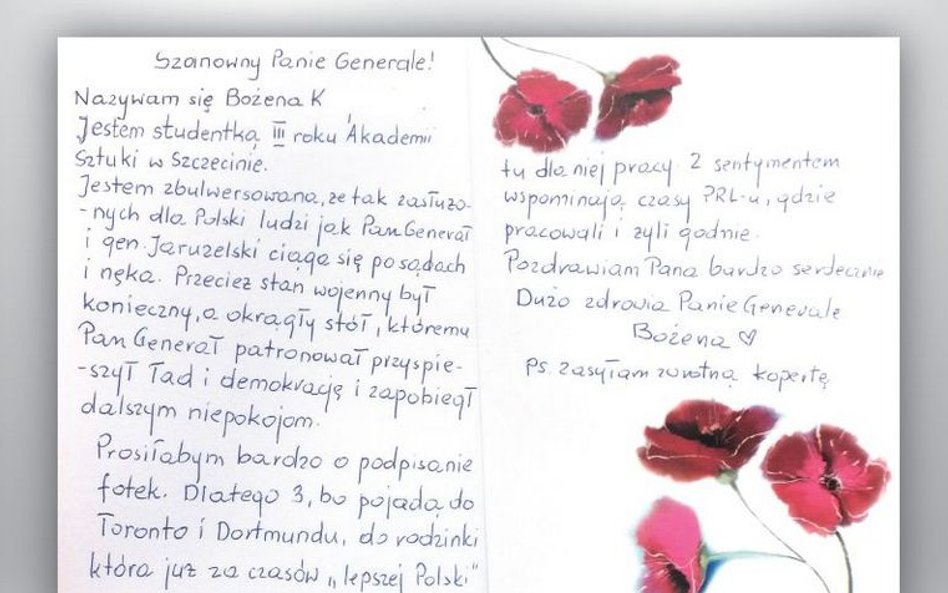 Szanowny Panie Generale!
Nazywam się Bożena K
Jestem studentką III roku Akademii
Sztuki w Szczecinie.
Jestem zbulwersowana, ze tak zasłuzo-
-nych dla Polski ludzi jak Pan Generał
i gen. Jaruzelski ciąga się po sądach
i nęka. Przeciez stan wojenny był
konieczny, a okrągły stół, któremu
Pan Generał patronował przyspie-
-szył ład i demokrację i zapobiegł
dalszym niepokojom.
Prosiłabym bardzo o podpisanie
fotek. Dlatego 3, bo pojadą do
Toronto i Dortmundu, do rodzinki
która juz za czasów „lepszej Polski"
tu dla niej pracy. Z sentymentem
wspominają czasy PRL-u, gdzie
pracowali i zyli godnie.
Pozdrawiam Pana bardzo serdecznie
Dużo zdrowia Panie Generale
Bożena ♡
Ps. zasyłam zwrotną kopertę